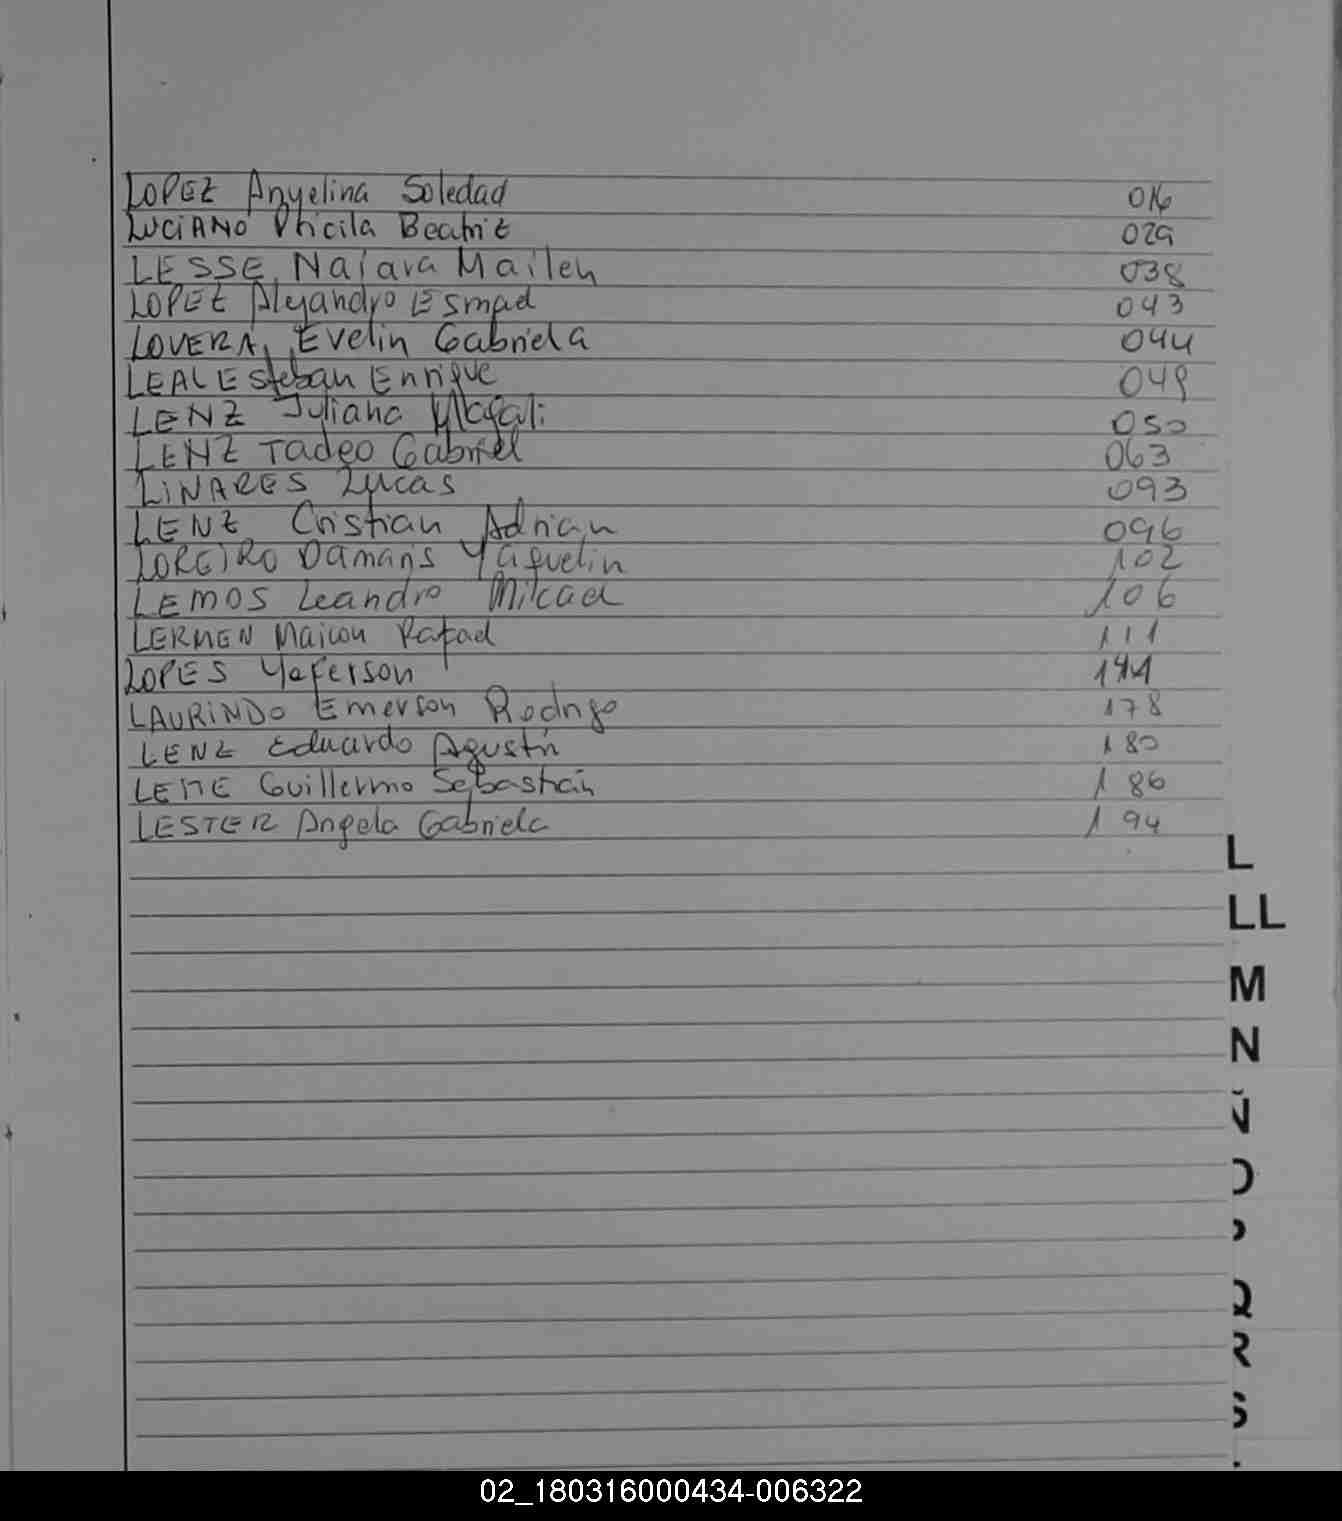 LOPEZ Anyelina Soledad 016
LUCIANO Pricila Beatriz 029
LESSE, Naiara Mailen 038
LOPEZ Alejandro Esmael 043
LOVERA, Evelin Gabriela 044
LEAL Esteban Enrique 049
LENZ Juliana Magali 050
LENZ Tadeo Gabriel 063
LINARES Lucas 093
LENZ Cristian Adrian 096
LOREIRO Damaris Yaquelin 102
LEMOS Leandro Micael 106
LERMEN Maicon Rafael 111
LOPES Yeferson
LAURINDO Emerson Rodrigo 178
LENZ Eduardo Agustín 180
LEME Guillermo Sebastián 186
LESTER Angela Gabriela 194
L
LL
M
N
Ñ
O
P
Q
R
S
02_180316000434-006322